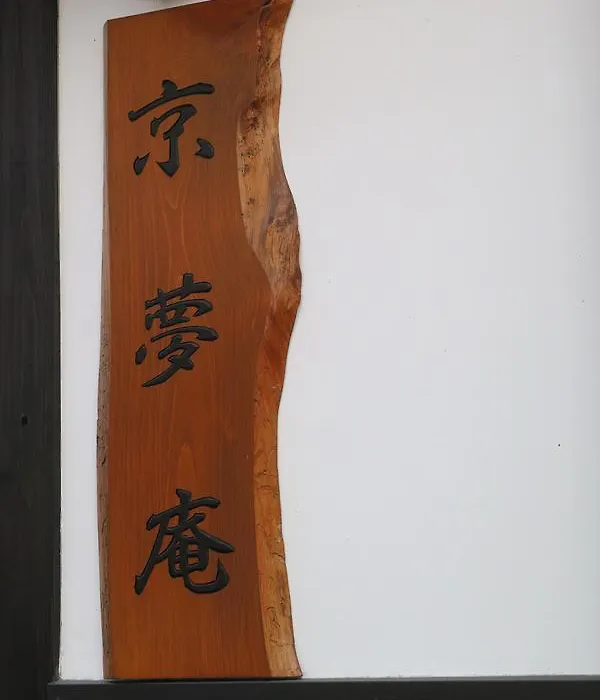 京夢庵